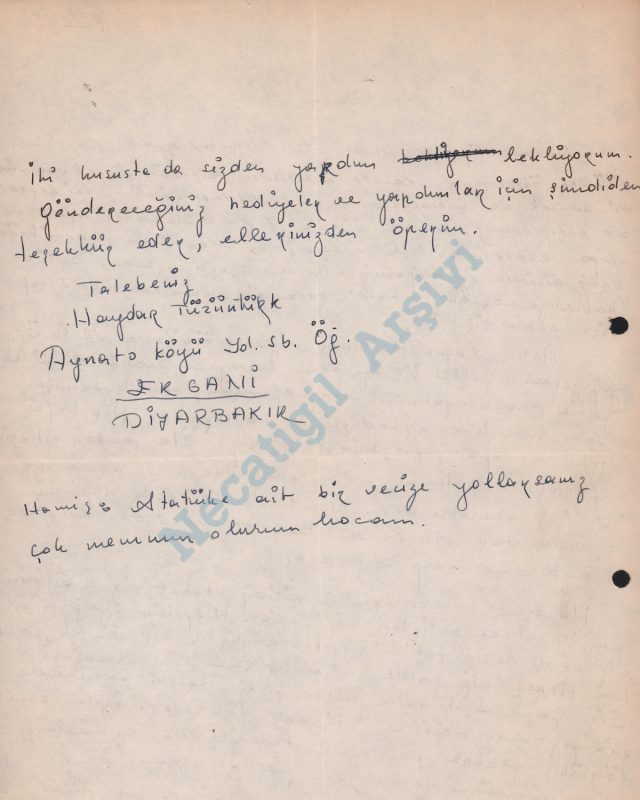 İki hususta da sizden yardım bekliyorum.
Göndereceğiniz hediyeler ve yardımlar için şimdiden
teşekkür eder, ellerinizden öperim.
Talebeniz
Haydar
Aynato köyü Yd. sb. Öğ.
ERGANİ
DİYARBAKIR
Hamiş: Atatürke ait bir vecize yollarsanız
çok memnun olurum hocam.
Necatigil Arşivi